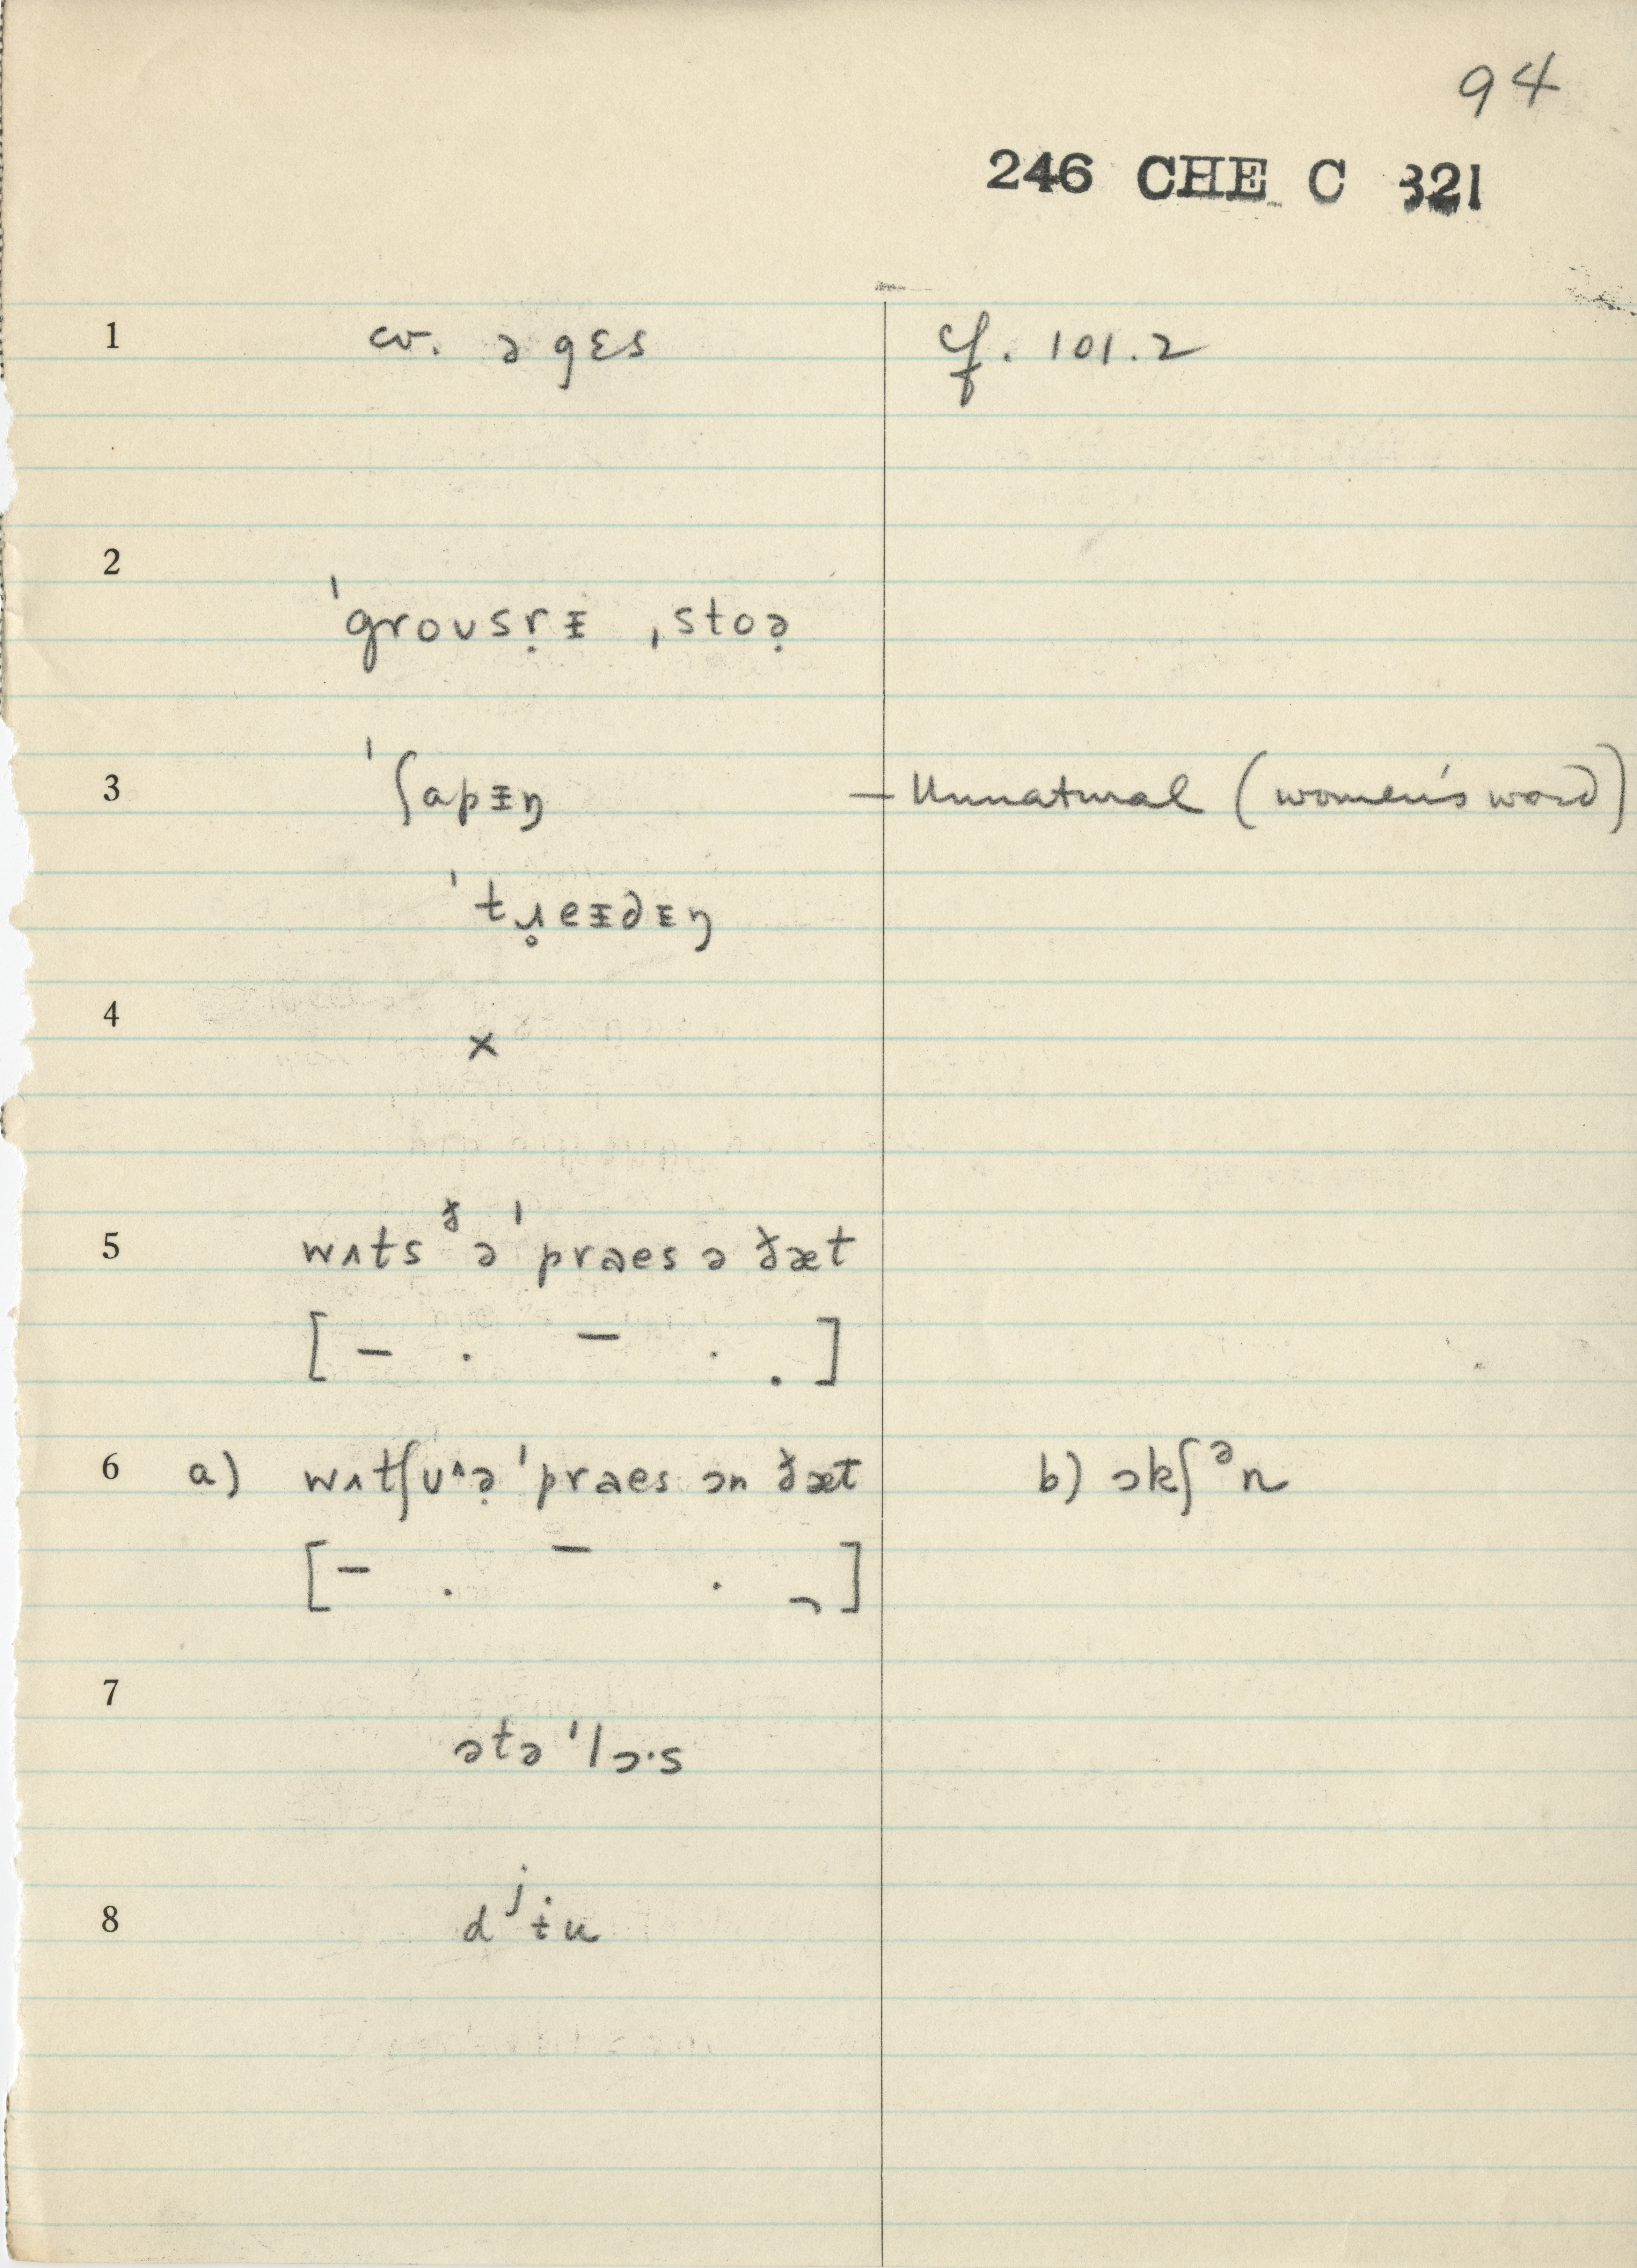 94
246 CHE C 321
1 cv. ə gɛs cf. 101.2
2 ˈgroʊsṛᵻ ˌstoə̣
3 ˈʃɑpᵻŋ – Unnatural (women's word)
ˈtɹ̥eᵻdᵻŋ
4 ×
5 wʌts ᶞə ˈpraes ə ðæt
[ – . – . . ]
6 a) wʌtʃʊ^ə̣ ˈpraes ɔn ðæt b) ɔkʃᵊn
[ – . – . ¬ ]
7 ətə ˈlɔ·s
8 dʲɨu